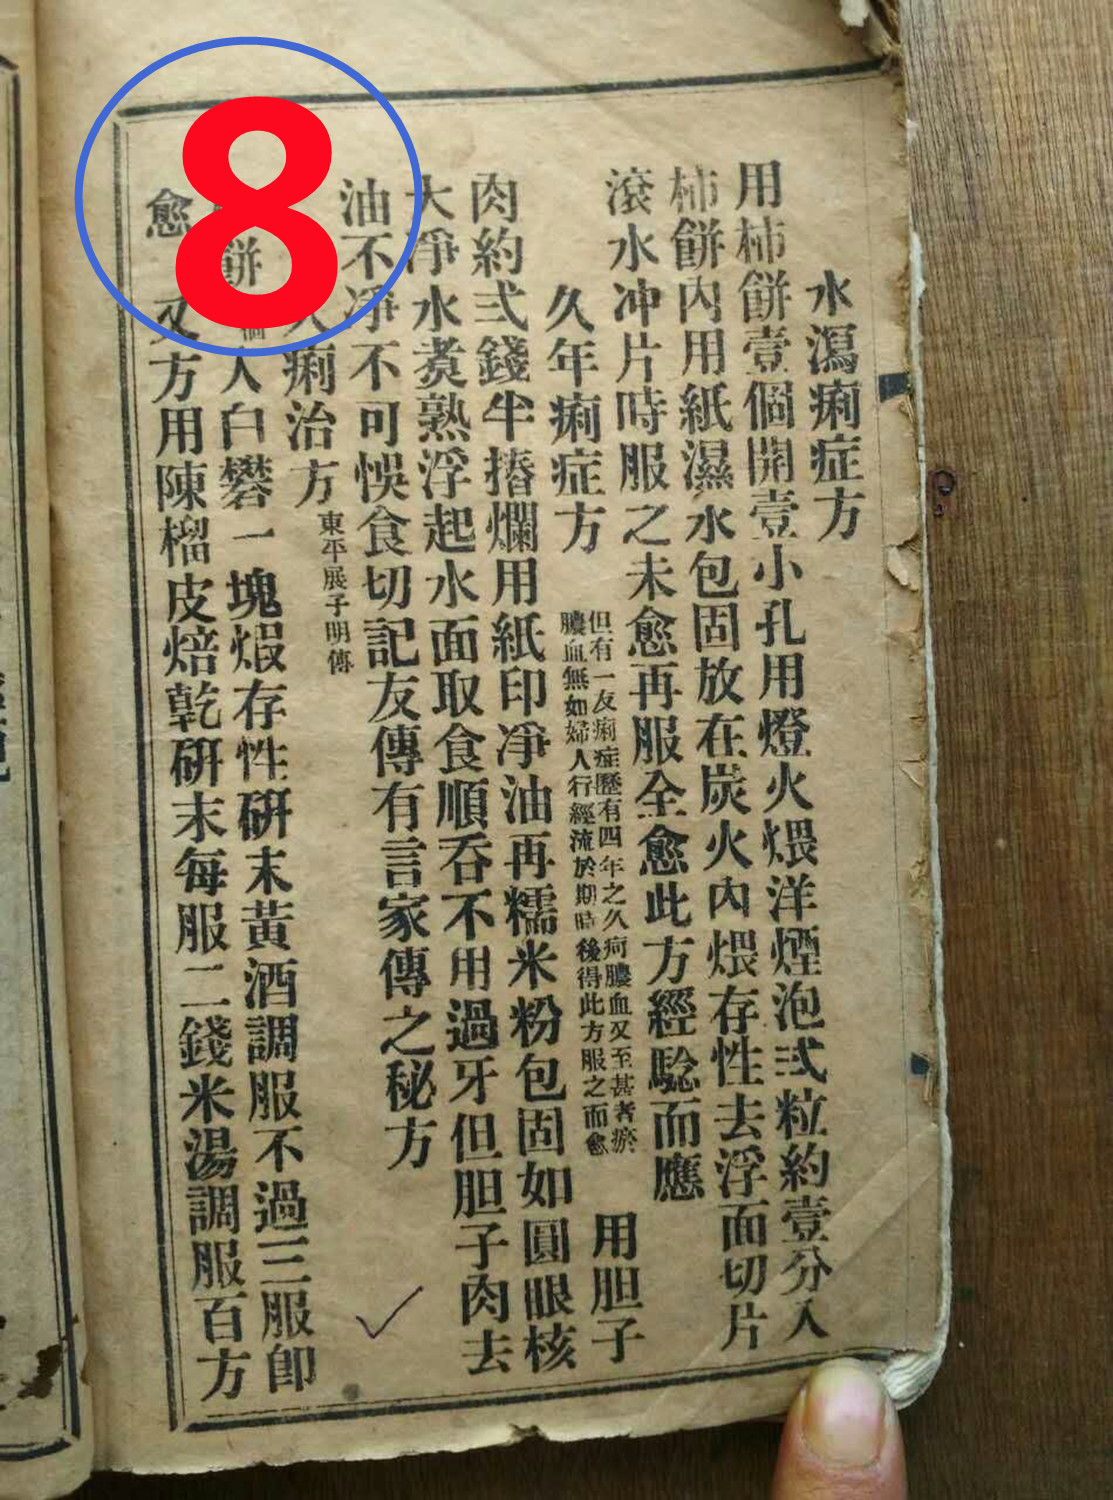 8
水瀉痢症方
用柿餅壹個開壹小孔用燈火煨洋煙泡弍粒約壹分入
柿餅內用紙濕水包固放在炭火內煨存性去浮面切片
滾水冲片時服之未愈再服全愈此方經驗而應
久年痢症方
但有一友痢症歷有四年之久疴膿血又至甚者瘀
膿血無如婦人行經流於期時後得此方服之而愈
用胆子
肉約弍錢半摏爛用紙印淨油再糯米粉包固如圓眼核
大淨水煑熟浮起水面取食順吞不用過牙但胆子肉去
油不淨不可悞食切記友傳有言家傳之秘方
久痢治方
東平展子明傳
餅
入白礬一塊煅存性研末黃酒調服不過三服卽
愈
又方用陳榴皮焙乾研末每服二錢米湯調服百方